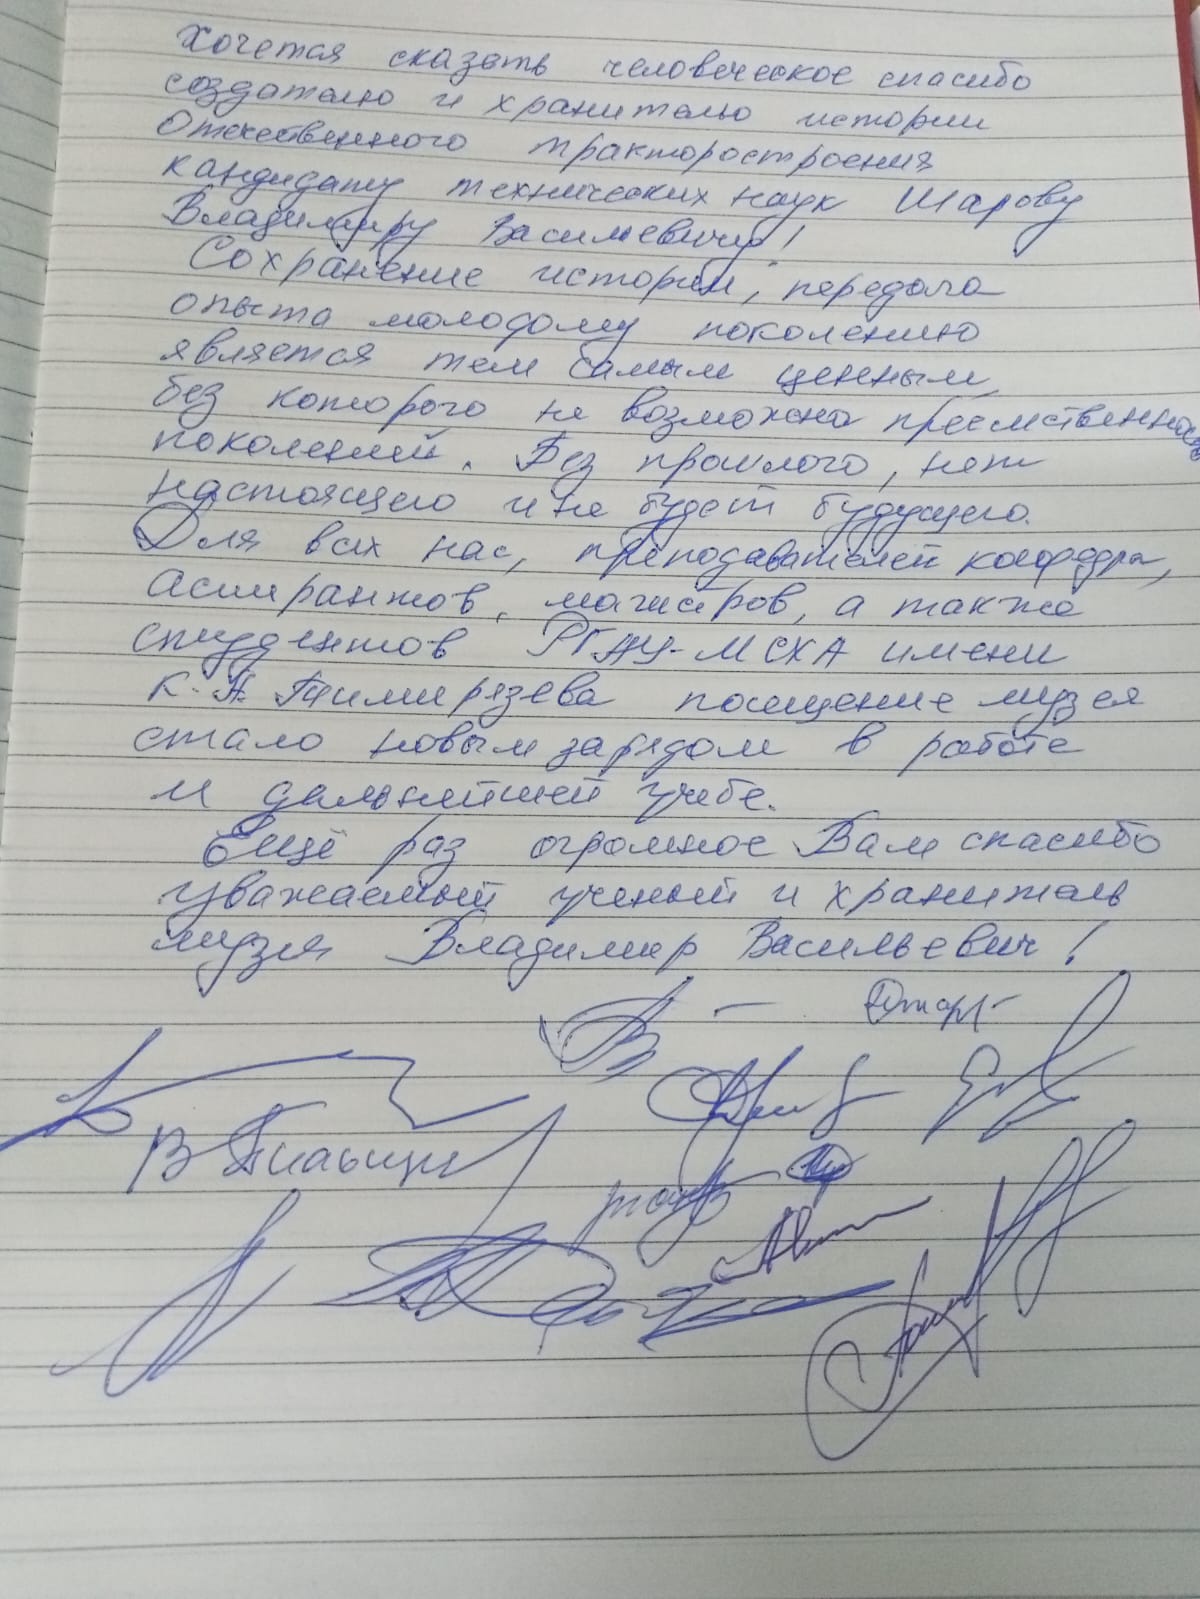 Хочется сказать человеческое спасибо
создателю и хранителю истории
Отечественного тракторостроения
кандидату технических наук Шарову
Владимиру Васильевичу!
Сохранение истории, передача
опыта молодому поколению
является тем самым ценным,
без которого не возможна преемственность
поколений. Без прошлого, нет
настоящего и не будет будущего.
Для всех нас, преподавателей кафедры,
аспирантов, магистров, а также
студентов РГАУ-МСХА имени
К.А. Тимирязева посещение музея
стало новым зарядом в работе
и дальнейшей учебе.
Ещё раз огромное Вам спасибо
уважаемый ученый и хранитель
музея Владимир Васильевич!